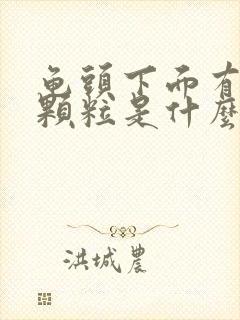 龟頭下而有
顆粒是什麼
洪城農